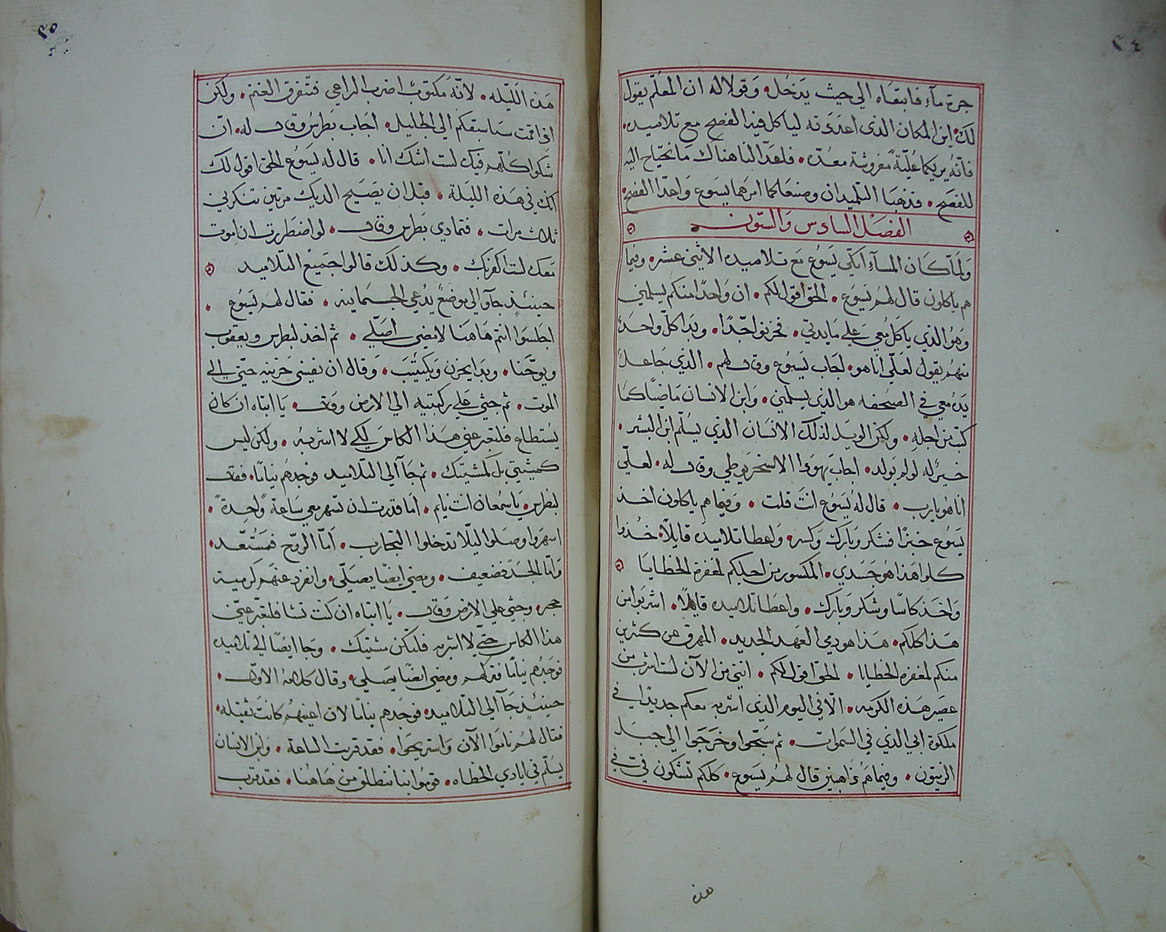 ٣٤
جرة ماء فاتبعاه الي حيث يدخل وقولا له ان المعلم يقول
لك اين المكان الذي اعددته لياكل فيه الفصح مع تلاميده
فانه يريكما علية مفروشة معده فلهذا لنا هناك ما نحتاج اليه
للفصح فذهبا التلميدان وصنعا كما امرهما يسوع واعدا الفصح
الفصل السادس والستون
ولما كان المساء اتكي يسوع مع تلاميده الاثني عشر وفيما
هم ياكلون قال لهم يسوع الحق اقول لكم ان واحدا منكم يسلمني
وهو الذي ياكل معي علي مايدتي فحزنوا جدا وبدا كل واحد
منهم يقول لعلي انا هو اجاب يسوع وقال لهم الذي جاعل
يده معي في الصحفه هو الذي يسلمني وابن الانسان ماضيا كما
كتب من اجله ولكن الويل لذلك الانسان الذي يسلم ابن البشر
خير له لو لم يولد اجاب يهودا الاسخريوطي وقال له لعلي
انا هو يارب قال له يسوع انت قلت وفيما هم ياكلون اخد
يسوع خبزا فشكر وبارك وكسر واعطا تلاميده قايلا خدوا
كلوا هذا هو جسدي المكسور من اجلكم لمغفرة الخطايا
واخد كاسا وشكر وبارك واعطا تلاميده قايلا اشربوا من
هذا كلكم هذا هو دمي العهد الجديد المهرق عن كثيرين
منكم لمغفرة الخطايا الحق اقول لكم انني من الآن لست اشرب من
عصير هذه الكرمه الا في اليوم الذي اشربه معكم جديدا في
ملكوة ابي الذي في السموات ثم سبحوا وخرجوا الي جبل
الزيتون وفيما هم ذاهبين قال لهم يسوع كلكم تشكون في في
هذه
٣٥
هذه الليله لانه مكتوب اضرب الراعي فتتفرق الغنم ولكن
اذا قمت سا سبقكم الي الجليل اجاب بطرس وقال له ان
شكوا كلهم فيك لست اشك انا قال له يسوع الحق اقول لك
انك في هذه الليلة قبل ان يصيح الديك مرتين تنكرني
ثلاث مرات فتمادي بطرس وقال لو اضطررت ان اموت
معك لست اكفر بك وكذلك قالوا جميع التلاميد
حينيذ جاوا الي موضع يدعي الجسمانيه فقال لهم يسوع
اجلسوا انتم هاهنا لامضي اصلي ثم اخذ بطرس ويعقوب
ويوحنا وبدا يحزن ويكتئب وقال ان نفسي حزينه حتي الي
الموت ثم جثي علي ركبتيه الي الارض وقال يا ابتاه ان كان
يستطاع فلتعبر عني هذا الكاس لكي لا اشربه ولكن ليس
كمشيتي بل كمشيتك ثم جا الي التلاميد فوجدهم نياما فقال
لبطرس يا سمعان انت نايم اما قدرت ان تسهر معي ساعة واحده
اسهروا وصلوا ليلا تدخلوا التجارب اما الروح فمستعد
واما الجسد فضعيف ومضي ايضا يصلي وانفرد عنهم كرمية
حجر وجثي علي الارض وقال يا ابتاه ان كنت تشا فلتعبر عني
هذا الكاس حتي لا اشربه فلتكن مشيتك وجا ايضا الي تلاميده
فوجدهم نياما فتركهم ومضي ايضا يصلي وقال كلامه الاول
حينيذ جا الي التلاميد فوجدهم نياما لان اعينهم كانت ثقيله
فقال لهم ناموا الآن واستريحوا فقد قربت الساعة وابن الانسان
يسلم في ايادي الخطاه قوموا بنا ننطلق من هاهنا فقد قرب